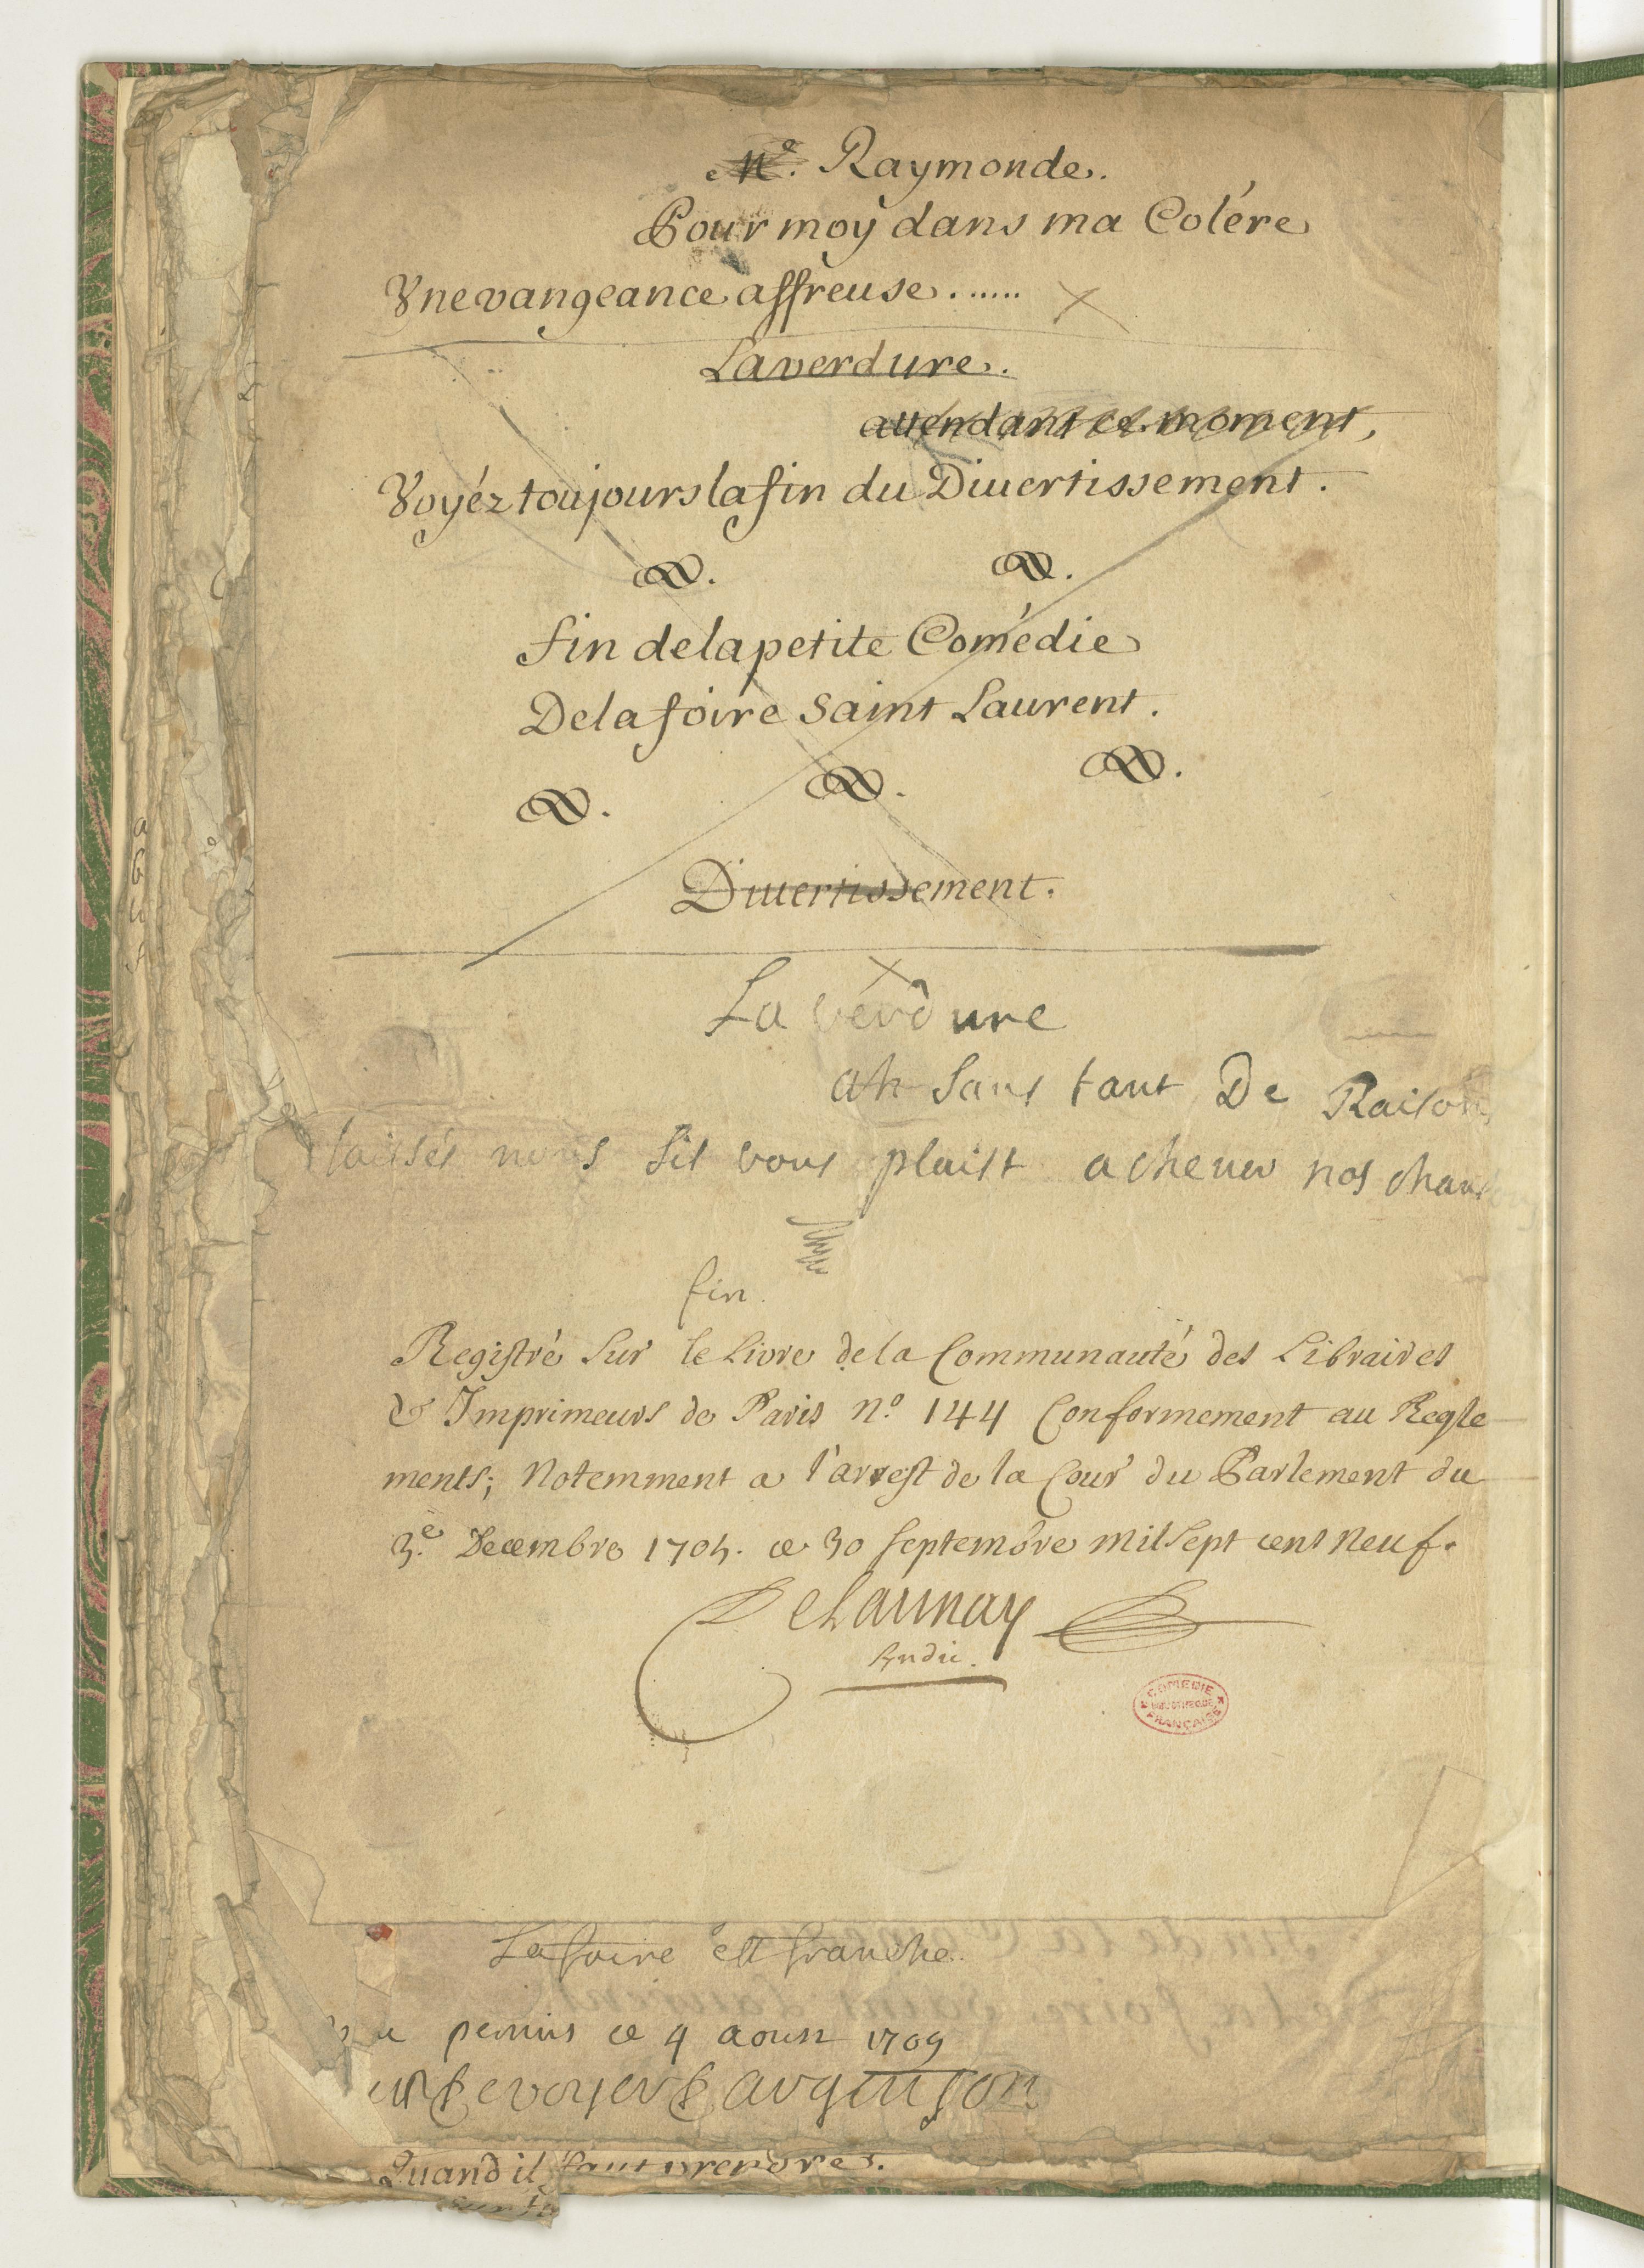 Me. Raymonde.
Pour moy dans ma Colére
Vne vangeance affreuse.......
Laverdure.
attendant ce moment,
Voyéz toujours la fin du Diuertissement.
fin de la petite Comédie
De la foire Saint Laurent.
Diuertissement.
La verdure
ah sans tant De Raison
laissés nous sil vous plaist acheuer nos chan
fin.
Registré sur le Livre de la Communauté des Libraires
& Imprimeurs de Paris no. 144 Conformement au Regle
ments; Notemment a l'arrest de la Cour du Parlement du
3.e Decembre 1705. ce 30 septembre mil sept cent neuf.
Delaunay
Sindic.
COMEDIE FRANÇAISE
BIBLIOTHEQUE
La foire est franche.
permis ce 4 aoust 1709
De voyer Dargenson
Quand il faut prendre.